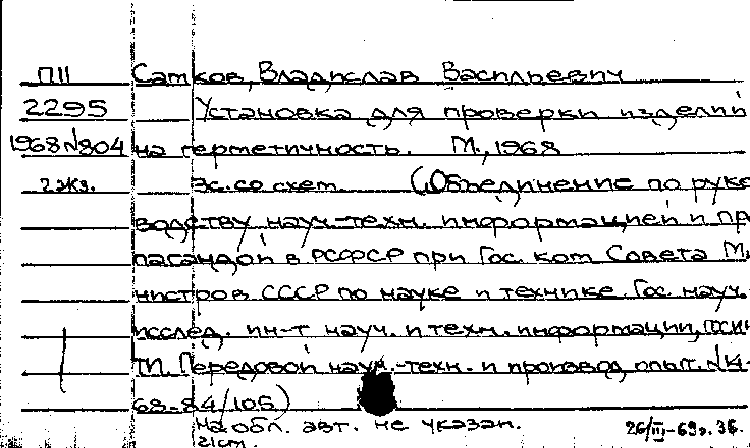 П11 Сатков, Владислав Васильевич
2295 Установка для проверки изделий
1968 №804 на герметичность. М., 1968
2 экз. 3с. со схем. (Объединение по руко
водству науч.-техн. информацией и про
пагандой в РСФСР при Гос. ком Совета Ми
нистров СССР по науке и технике. Гос. науч.
исслед. ин-т науч. и техн. информации, ГОСИН
ТИ. Передовой науч.-техн. и производ. опыт. №14-
68-84/106)
На обл. авт. не указан.
26/III-69г. 36.